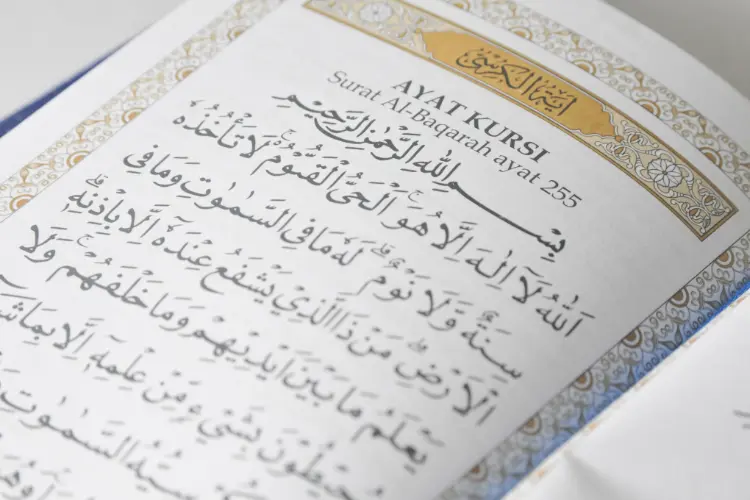 اٰيَةُ الْكُرْسِيِّ
AYAT KURSI
Surat Al-Baqarah ayat 255
بِسْمِ اللهِ الرَّحْمٰنِ الرَّحِيْمِ
اَللهُ لَآ اِلٰهَ اِلَّا هُوَۚ اَلْحَيُّ الْقَيُّوْمُ ۚ لَا تَأْخُذُهٗ
سِنَةٌ وَّلَا نَوْمٌۗ لَهٗ مَا فِى السَّمٰوٰتِ وَمَا فِى
الْاَرْضِۗ مَنْ ذَا الَّذِيْ يَشْفَعُ عِنْدَهٗٓ اِلَّا بِاِذْنِهٖۗ
يَعْلَمُ مَا بَيْنَ اَيْدِيْهِمْ وَمَا خَلْفَهُمْۚ وَلَا
يُحِيْطُوْنَ بِشَيْءٍ مِّنْ عِلْمِهٖٓ اِلَّا بِمَا
السَّمٰوٰتِ